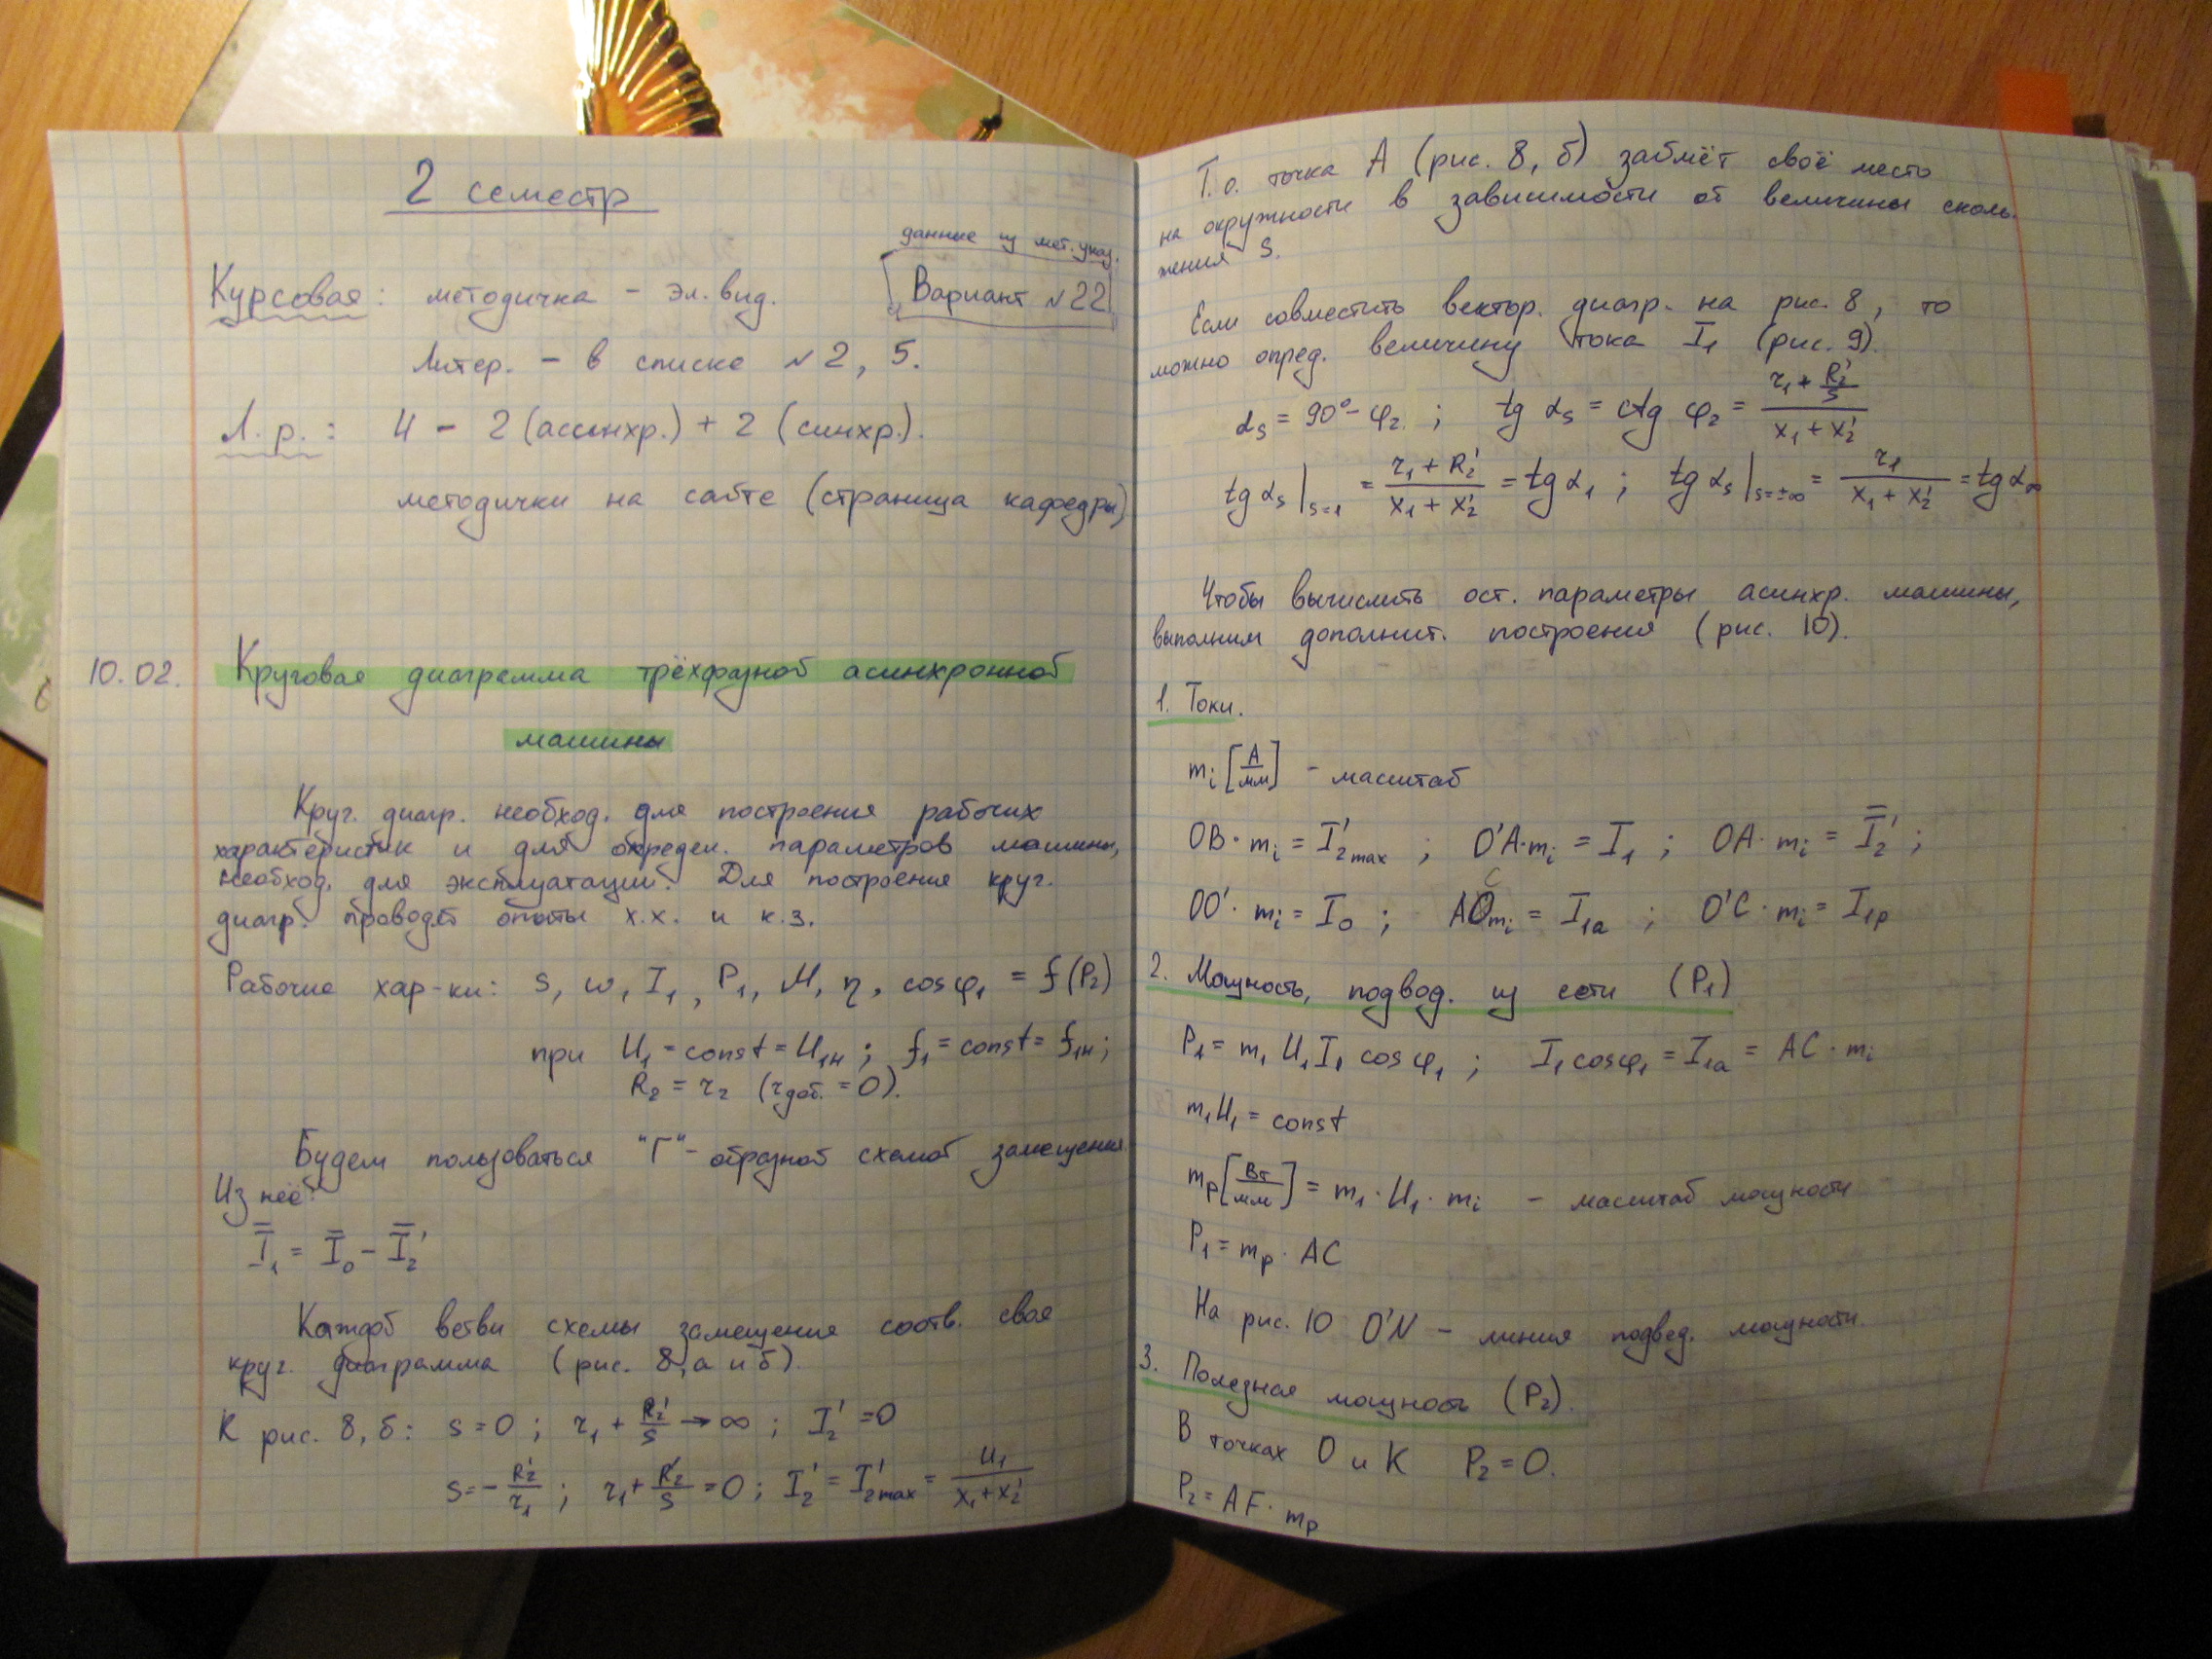 2 семестр
данные из мет. указ.
Курсовая: методичка - эл. вид. Вариант №22
Литер. - в списке №2, 5.
Л. р.: 4 - 2 (ассинхр.) + 2 (синхр.).
методички на сайте (страница кафедры)
10.02. Круговая диаграмма трёхфазной асинхронной
машины
Круг. диагр. необход. для построения рабочих
характеристик и для определ. параметров машины,
необход. для эксплуатации. Для построения круг.
диагр. проводят опыты х.х. и к.з.
Рабочие хар-ки: s, ω, I₁, P₁, M, η, cosφ₁ = f(P₂)
при U₁ = const = U₁н; f₁ = const = f₁н;
R₂ = r₂ (r доб. = 0).
Будем пользоваться "Г" - образной схемой замещения.
Из неё:
I̿₁ = I̿₀ - I̿₂'
Каждой ветви схемы замещения соотв. своя
круг. диаграмма (рис. 8, а и б).
К рис. 8, б: s = 0; r₁ + R₂'/s → ∞; I₂' = 0
s = - R₂'/r₁; r₁ + R₂'/s = 0; I₂' = I₂'max = U₁/(x₁ + x₂')
Т.о. точка А (рис. 8, б) займёт своё место
на окружности в зависимости от величины сколь-
жения s.
Если совместить вектор. диагр. на рис. 8, то
можно опред. величину тока I₁ (рис. 9).
αs = 90° - φ₂; tg αs = ctg φ₂ = (r₁ + R₂'/s)/(x₁ + x₂')
tg αs |s=1 = (r₁ + R₂')/(x₁ + x₂') = tg α₁; tg αs |s=±∞ = r₁/(x₁ + x₂') = tg α∞
Чтобы вычислить ост. параметры асинхр. машины,
выполним дополнит. построения (рис. 10).
1. Токи.
mi [А/мм] - масштаб
OB · mi = I₂'max; O'A · mi = I₁; OA · mi = I̿₂';
OO' · mi = I₀; AC mi = I₁a; O'C · mi = I₁p
2. Мощность, подвод. из сети (P₁)
P₁ = m₁ U₁ I₁ cosφ₁; I₁cosφ₁ = I₁a = AC · mi
m₁U₁ = const
mp [Вт/мм] = m₁ · U₁ · mi - масштаб мощности
P₁ = mp · AC
На рис. 10 O'N - линия подвед. мощности.
3. Полезная мощность (P₂).
В точках O и K P₂ = 0.
P₂ = AF · mp